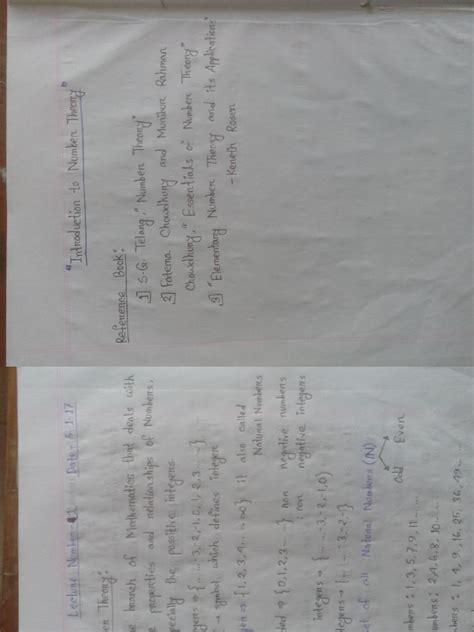 "Introduction to Number Theory"
Reference Book:
1] S.G. Telang, "Number Theory"
2] Fatema Chowdhury and Munibur Rahman
Chowdhury, "Essentials of Number Theory"
3] "Elementary Number Theory and its Applications"
- Keneth Rosen
Lecture Number 01 Date: 5.1.17
Theory:
branch of Mathematics that deals with
properties and relationships of Numbers,
the possitive integers
→ {.....-3,-2,-1,0,1,2,3....}
→ symbol which defines integers
→ {1,2,3,4....∞} it also called
Natural Numbers
⇒ {0,1,2,3....} non negative numbers
: non negative integers
integers → {....-3,-2,-1,0}
→ {....-3,-2,-1}
of all Natural Numbers (N)
Odd Even
: 1,3,5,7,9,11.....
: 2,4,6,8,10....
: 1,4,9,16,25,36,49....